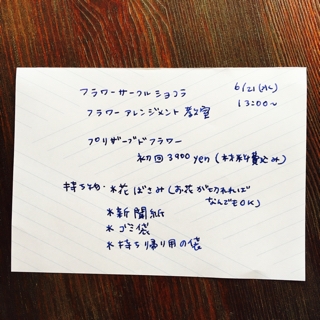 フラワーサークルショコラ
6/21(水)
13:00~
フラワーアレンジメント教室
プリザーブドフラワー
初回3900yen(材料費込み)
持ちもの・*花ばさみ(お花が切れれば
なんでもOK)
*新聞紙
*ゴミ袋
*持ち帰り用の袋